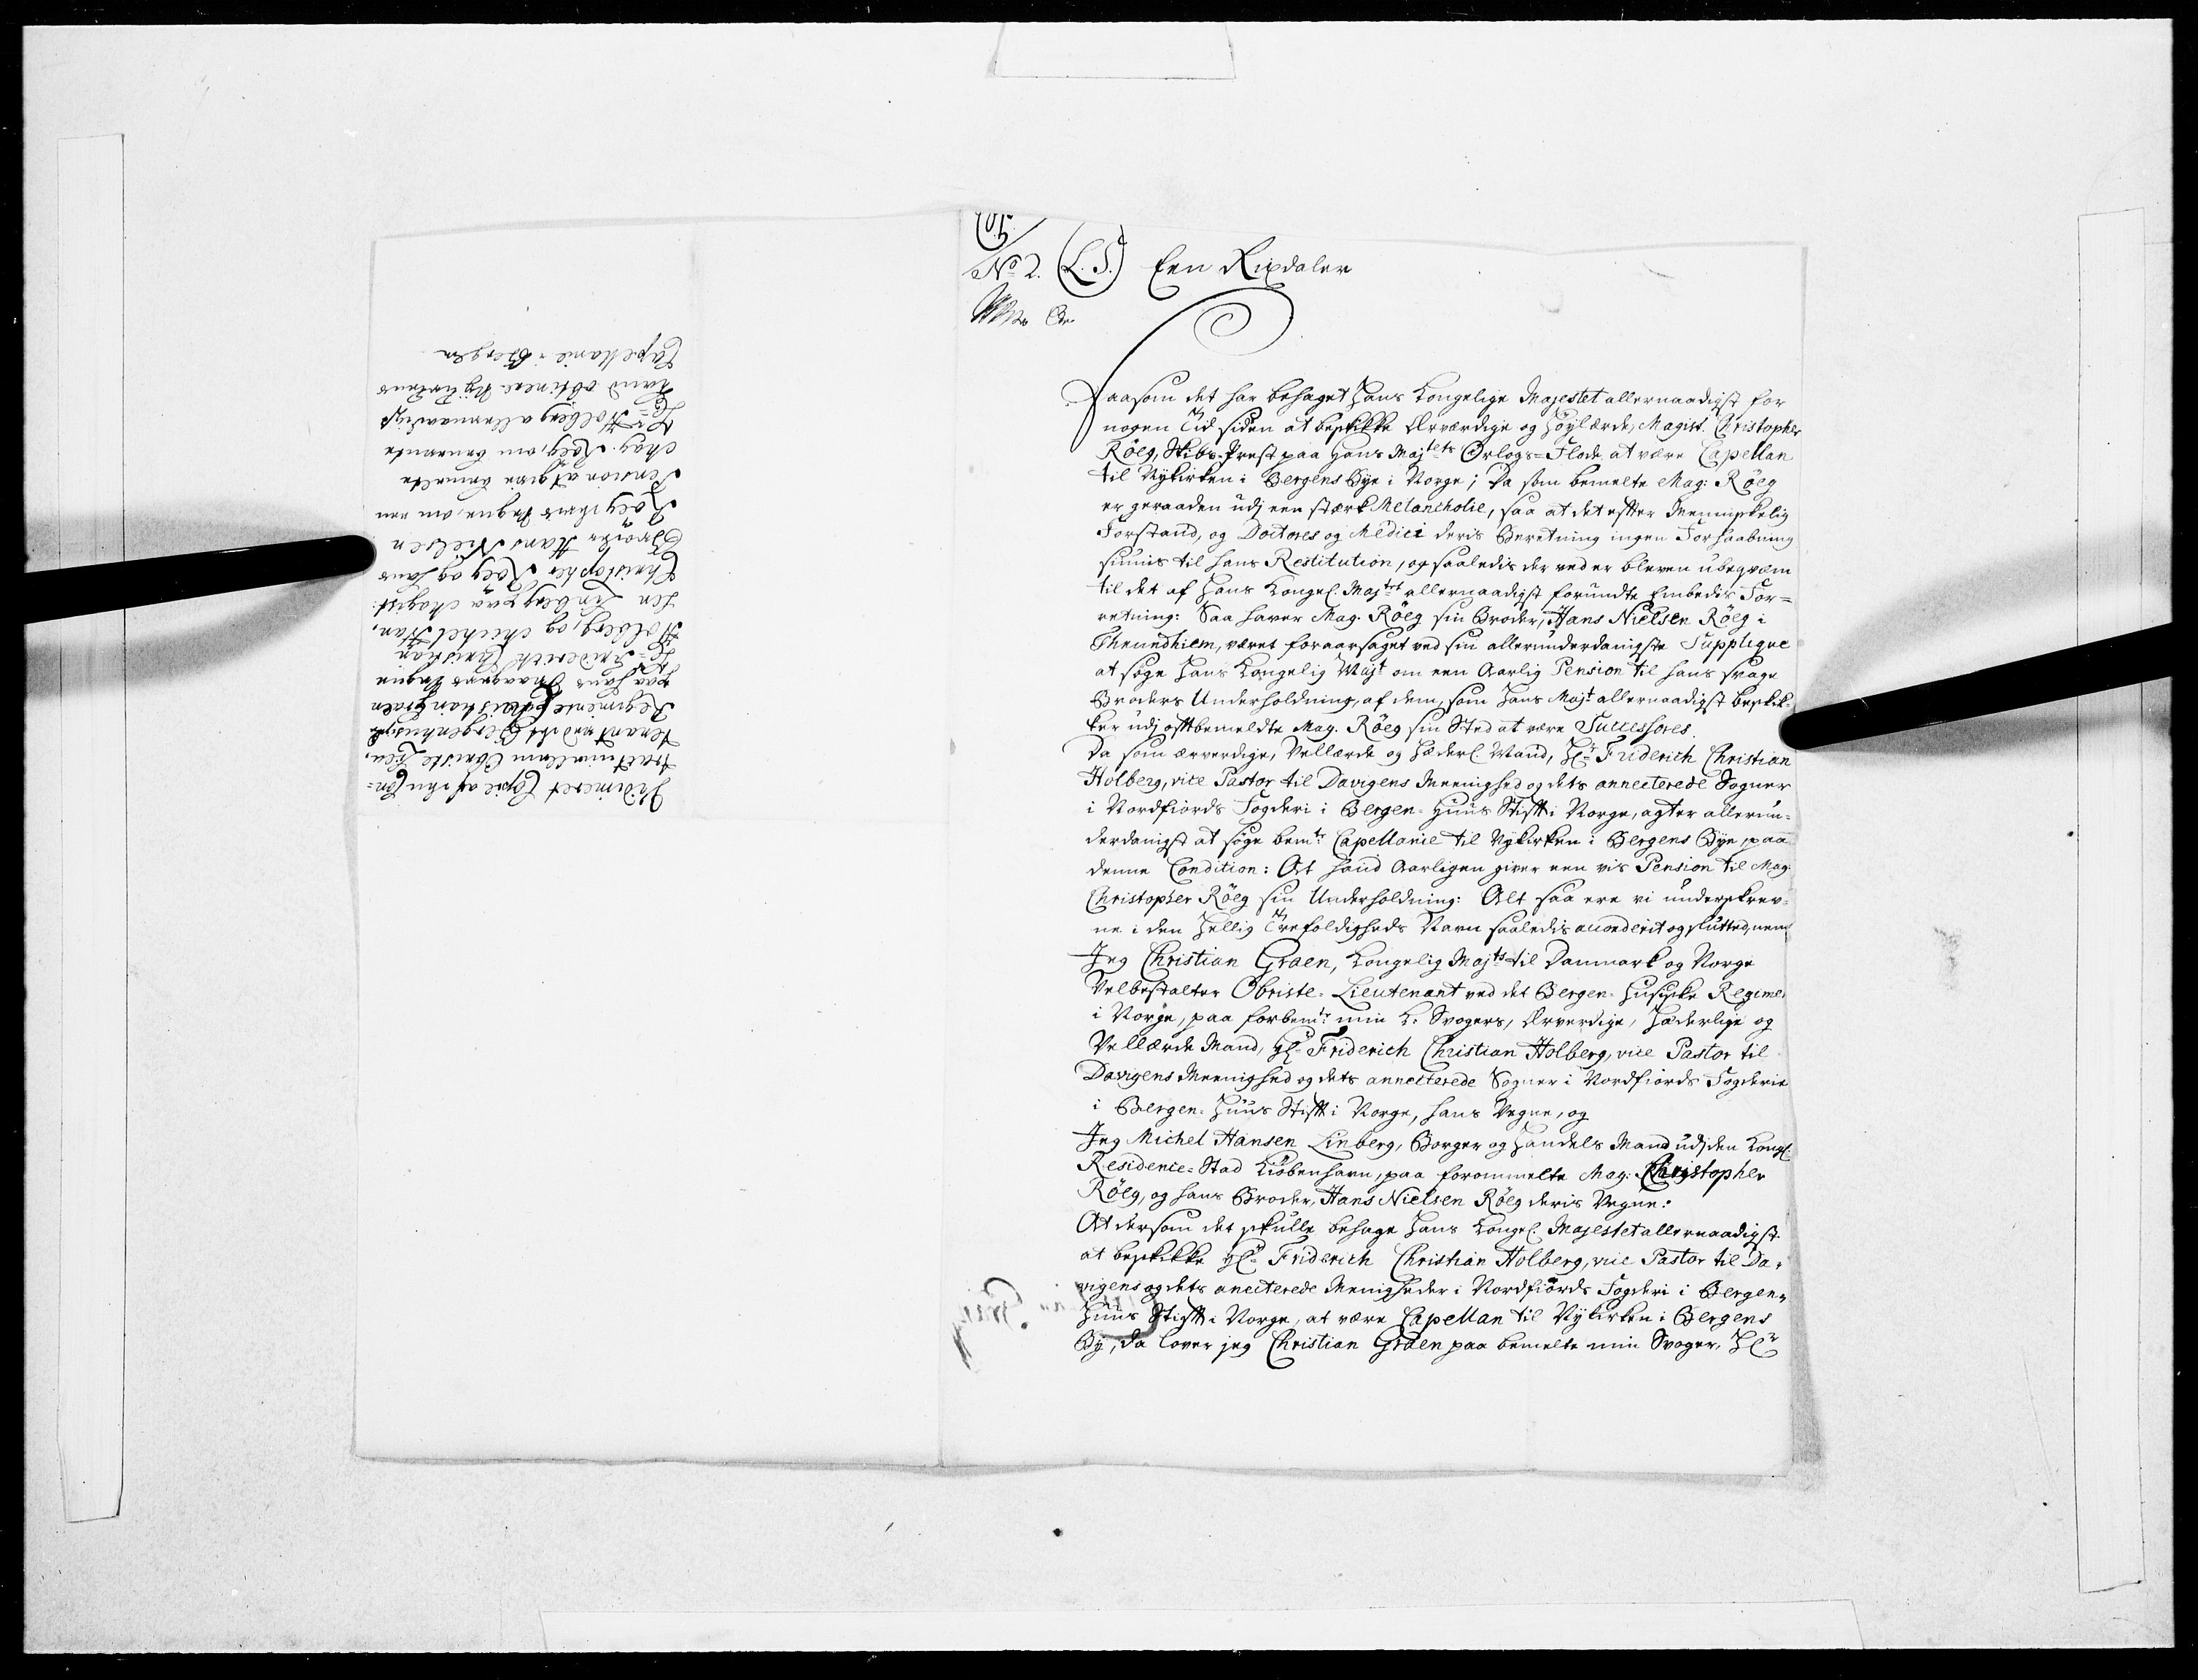 No 2. (L.S.) Een Rixdaler
Saasom det har behaget Hans Kongelige Majestet allernaadigst for
nogen Tid siden at beskikke Ærværdige og Høylærde, Magist. Christopher
Röeg, Skibs-Prest paa Hans Majtets Orlogs=Flode at være Capellan
til Nykirken i Bergens Bye i Norge; Da som bemelte Mag: Röeg
er geraaden udj een stærk Melancholie, saa at det effter Menniskelig
Forstand, og Doctores og Medici deris Beretning ingen Forhaabning
siunis til hans Restitution, og saaledis der ved er bleven ubeqvem
til det af Hans Kongel. Majtet allernaadigst forundte Embedis For=
retning: Saa haver Mag. Röeg sin Broder, Hans Nielsen Röeg i
Thrundhiem, været foraarsaget ved sin allerunderdanigste Supplique
at søge Hans Kongelig Majt om een Aarlig Pension til hans svage
Broders Underholdning, af dem, som Hans Majt allernaadigst beskik=
ker udj offtbemeldte Mag. Röeg sin Sted at være Successores.
Da som ærverdige, Vellærde og Hæderl. Mand, Hr Friderich Christian
Holberg, vice Pastor til Davigens Meenighed og dets annecterede Sogner
i Nordfiords Fogderi i Bergen-Huus Stifft i Norge, agter allerun=
derdanigst at søge bemte Capellanie til Nykirken i Bergens Bye, paa
denne Condition: At hand Aarligen giver een vis Pension til Mag:
Christopher Röeg sin Underholdning: Alt saa ere vi underskrev=
ne i den Hellig Trefoldigheds Navn saaledis accorderit og slutted, neml
Jeg Christian Graen, Kongelig Majts til Danmark og Norge
Velbestalter Obriste-Lieutenant ved det Bergen-Husiske Regime
i Norge, paa forbemte min K. Svogers, Ærverdige, Hæderlige og
Vellærde Mand, Hr Friderich Christian Holberg, vice Pastor til
Davigens Meenighed og dets annecterede Sogner i Nordfiords Fogderie
i Bergen-Huus Stifft i Norge, hans Vegne, og
Jeg Michel Hansen Linberg, Borger og Handels Mand udj den Kongl:
Residence-Stad Kiöbenhavn, paa forommelte Mag: Christopher
Röeg, og hans Broder, Hans Nielsen Röeg deris Vegne:
At dersom det skulle behage Hans Kongel. Majestet allernaadigst
at beskikke Hr Friderich Christian Holberg, vice Pastor til Da=
vigens og dets anecterede Menigheder i Nordfiords Fogderi i Bergen=
Huus Stifft i Norge, at være Capellan til Nykirken i Bergens
By, da lover jeg Christian Graen paa bemelte min Svoger, Hr
Vidimeret Copie af den Con=
tract imellem Obriste Lieu=
tenant ved det Bergenhusiske
Regimente Christian Graen
paa hans Svogers Vegne
Hr Friderich Christian
Holberg, og Michel Han=
sen Linberg paa Magist:
Christopher Röeg og hans
Broder Hans Nielsen
Röeg deris Vegne, om een
Pension at give bemelte
Mag. Röeg, om benevnte
Hr Holberg allernaadigst
kand obtinere Nykirkens
Capellanie i Bergen